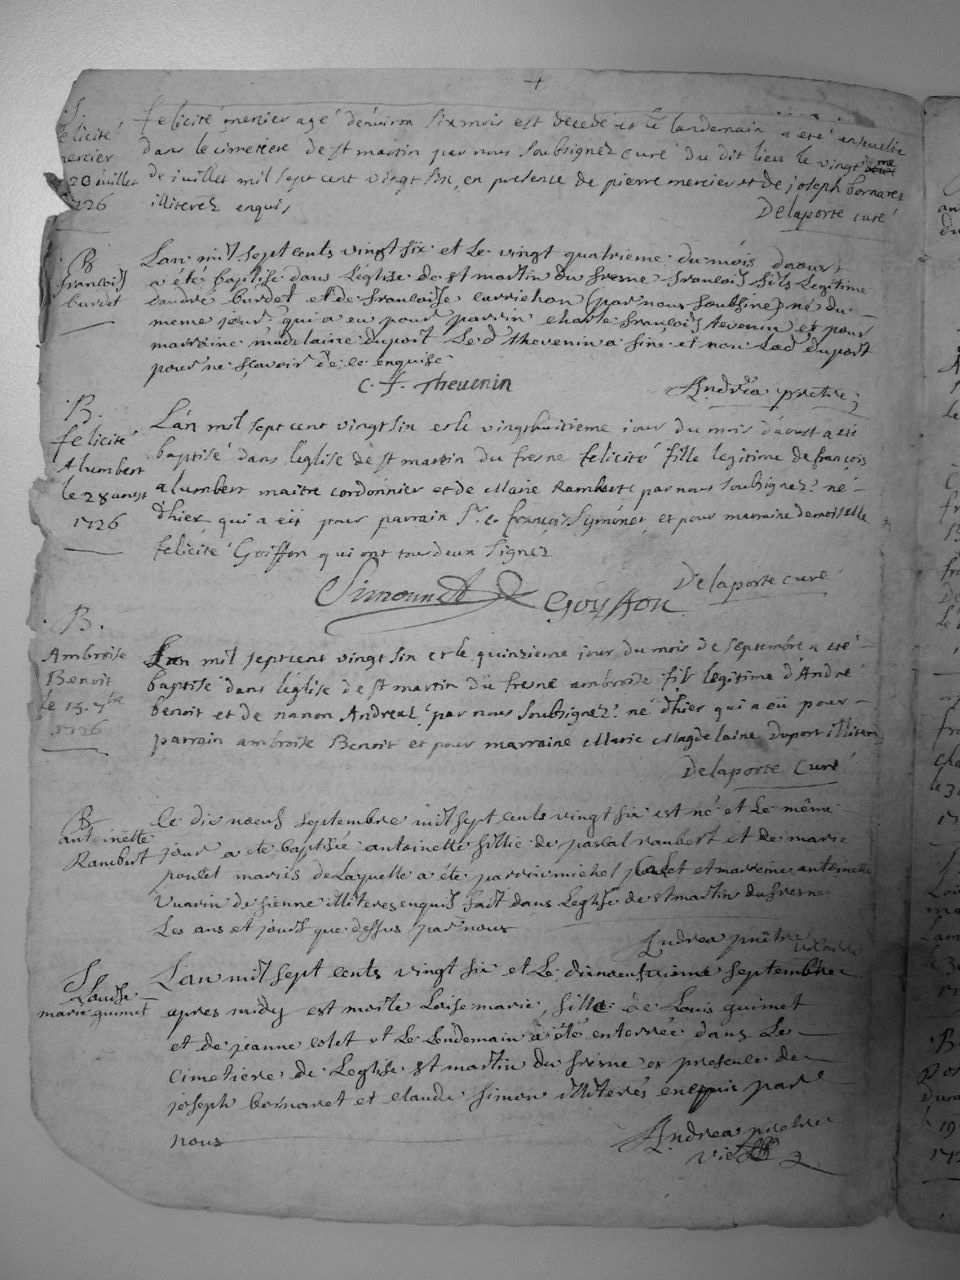 S
felicité
mercier
20 iuillet
1726
felicité mercier agé d'enuiron six mois est decedé et le landemain a eté enseuelie
dans le cimetiere de st martin par nous soubsignez curé du dit lieu le vingtieme
de iuillet mil sept cent vingt six, en presence de pierre mercier et de joseph bornarez
illiterez enquis
Delaporte curé
B
francois
burdet
Lan mil sept cents vingt six et le vingt quatrieme du mois daoust
a été baptisé dans L'eglise de st martin du fresne francois fils Legitime
dandré burdet et de francoise carrichon (par nous soubsiné) né du
meme jour qui a eu pour parrin charle francois tevenin et pour
marraine madelaine duport Le d thevenin a siné et non lad duport
pour ne scavoir de ce enquise
C. f. Thevenin
Andréa prettre
B.
felicité
Alumbert
le 28 aoust
1726
L'an mil sept cent vingt six et le vingthuitieme iour du mois daoust a eté
baptisé dans l'eglise de st martin du fresne felicité fille legitime de françois
alumbert maitre cordonnier et de Marie Rambert (par nous soubsignez) né
d'hier qui a eü pour parrain Sr françois Symonet et pour marraine demoiselle
felicité Goiffon qui ont tous deux signez
Simonnet Goyffon Delaporte curé
B.
Ambroise
Benoit
le 15. 7bre
1726
Lan mil sept cent vingt six et le quinzieme jour du mois de septembre a eté
baptisé dans l'eglise de st martin du fresne ambroise fils legitime d'André
benoit et de nanon Andreal (par nous soubsignez) né d'hier qui a eü pour
parrain ambroise Benoit et pour marraine Marie Magdelaine duport illiterez
Delaporte Curé
B
antoinette
Rambert
Ce dix noeuf septembre mil sept cents vingt six est né et Le même
jour a ete baptisée antoinette fillie de pascal raubert et de marie
poulet mariés de Laquelle a été parrin michel et marreine antoinette
Vuarin de sienne illiteres enquis fait dans Leglise de st martin du fresne
Les ans et jours que dessus par nous
Andrea prêtre vicaire
S
Louise
marie guimet
Lan mil sept cents vingt six et Le dixneufvieme septembre
apres midy est morte Loise marie, fille de Louis guimet
et de jeanne colet et Le Lendemain a été enterrée dans Le
cimetiere de Leglise st martin du fresne en presence de
joseph bornaret et claude simon illiterés enquis par
nous
Andrea prebtre